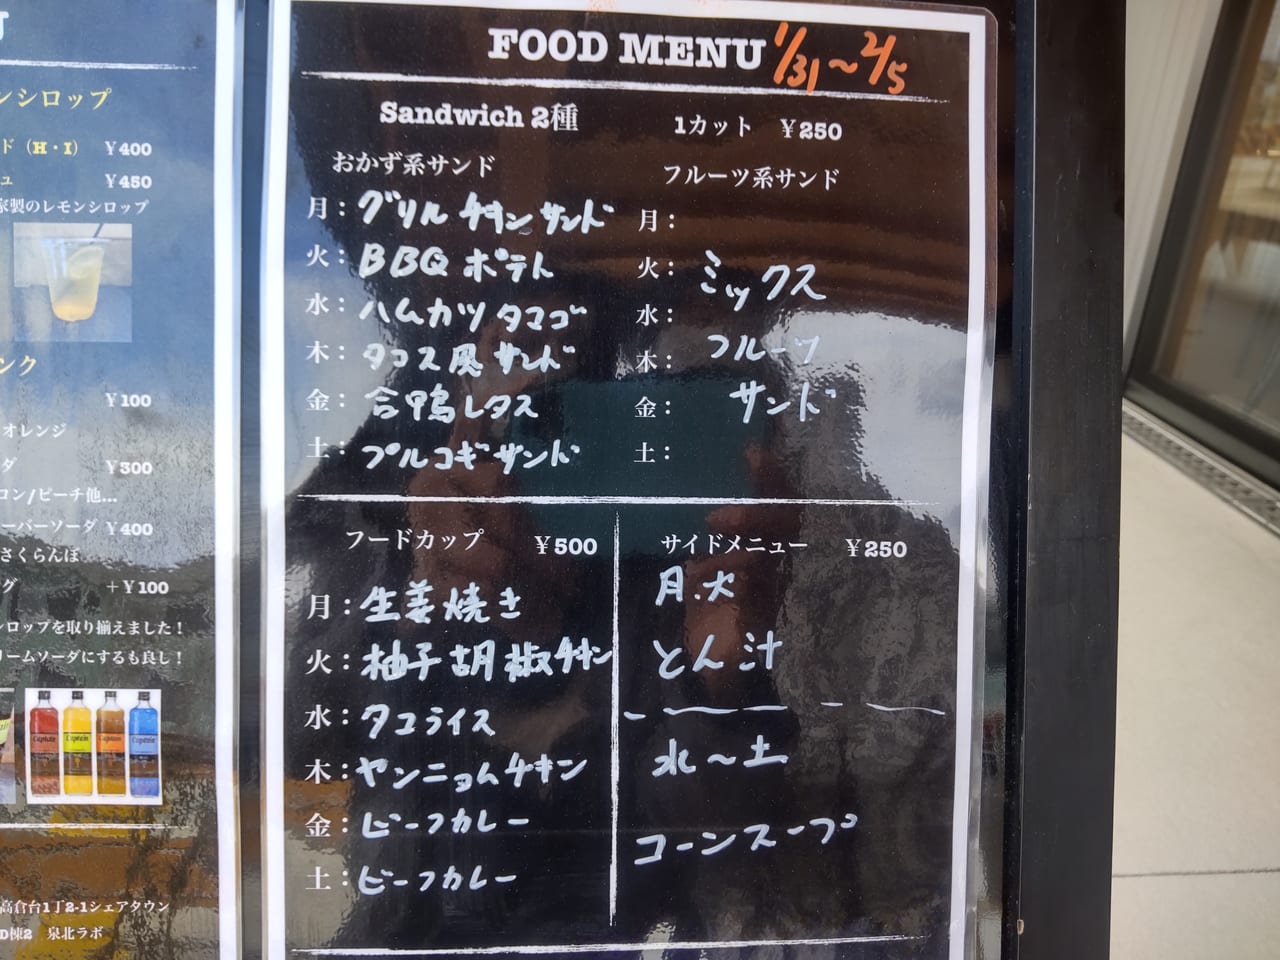 ンシロップ
ド（H・I） ¥400
ュ ¥450
家製のレモンシロップ
ンク
¥100
オレンジ
ダ ¥300
コン/ピーチ他...
ーパーソーダ ¥400
さくらんぼ
グ +¥100
シロップを取り揃えました！
リームソーダにするも良し！
Captain Captain Captain Captain
高倉台1丁2-1シェアタウン
D棟2 泉北ラボ
FOOD MENU 1/31～2/5
Sandwich 2種 1カット ¥250
おかず系サンド
月：グリルチキンサンド
火：BBQポテト
水：ハムカツタマゴ
木：タコス風サンド
金：合鴨レタス
土：プルコギサンド
フルーツ系サンド
月：
火：ミックス
水：
木：フルーツ
金：サンド
土：
フードカップ ¥500
月：生姜焼き
火：柚子胡椒チキン
水：タコライス
木：ヤンニョムチキン
金：ビーフカレー
土：ビーフカレー
サイドメニュー ¥250
月.火
とん汁
水～土
コーンスープ